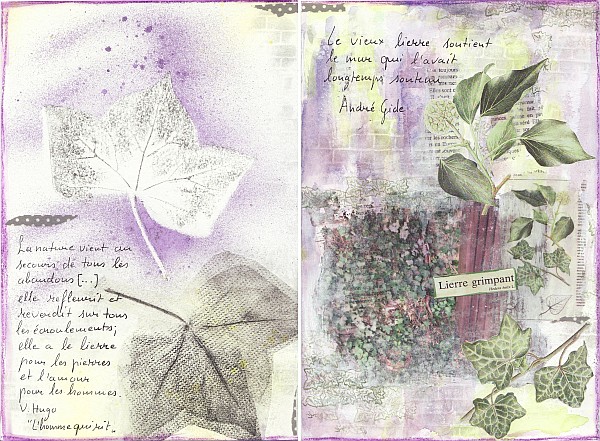 La nature vient au
secours de tous les
abandons [...]
elle refleurit et
reverdit sur tous
les écroulements;
elle a le lierre
pour les pierres
et l'amour
pour les hommes.
V. Hugo
"L'homme qui rit".
Le vieux lierre soutient
le mur qui l'avait
longtemps soutenu
André Gide
Lierre grimpant